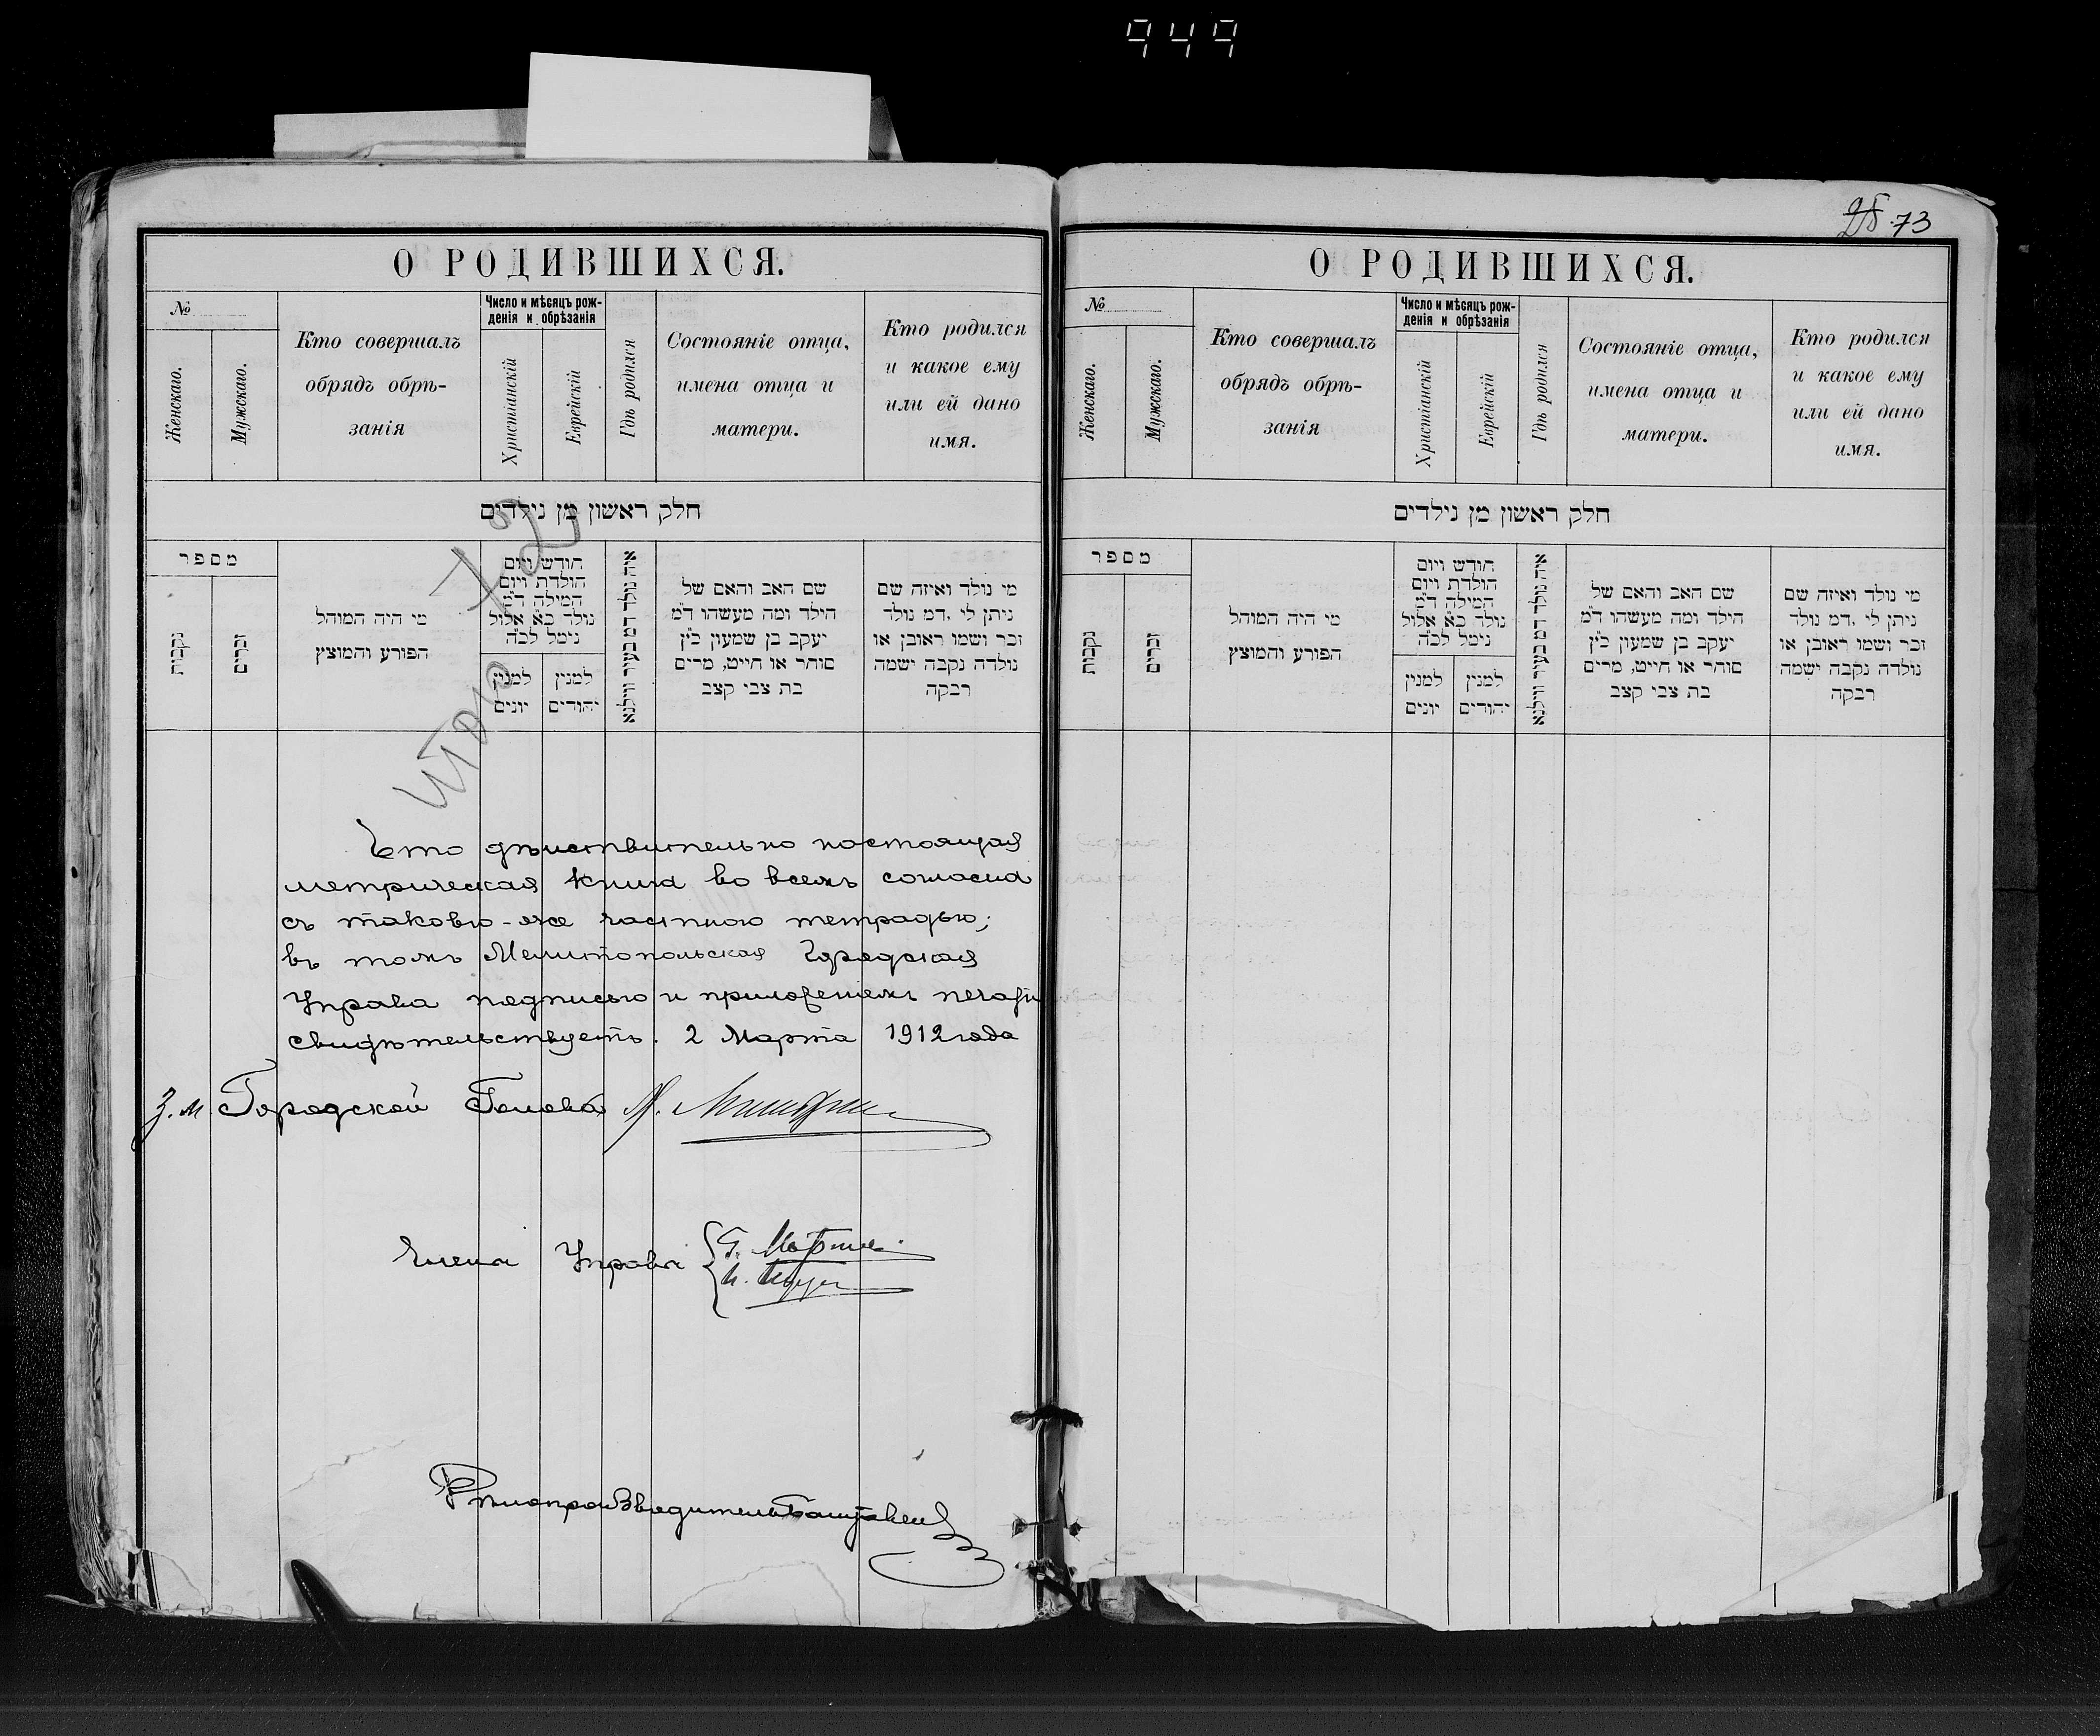 949
О РОДИВШИХСЯ.
№
Женскаго.
Мужскаго.
Кто совершалъ
обрядъ обрѣ-
занія
Число и мѣсяцъ рож-
денія и обрѣзанія
Христіанскій
Еврейскій
Гдѣ родился
Состояніе отца,
имена отца и
матери.
Кто родился
и какое ему
или ей дано
имя.
חלק ראשון מן נילדים
מספר
נקבות
זכרים
מי היה המוהל
הפורע והמוצץ
חודש ויום
הולדת ויום
המילה ד״מ
נולד כ״א אלול
נימל לכ״ה
למנין
יונים
למנין
יהודים
איה נולד דמ בעיר ווילנא
שם האב והאם של
הילד ומה מעשהו ד״מ
יעקב בן שמעון כ״ץ
סוחר או חייט, מרים
בת צבי קצב
מי נולד ואיזה שם
ניתן לי .דמ נולד
זכר ושמו ראובן או
נולדה נקבה ישמה
רבקה
Что дѣйствительно настоящая
метрическая книга во всемъ согласна
съ таковою-же частною тетрадью;
въ томъ Мелитопольская Городская
Управа подписью и приложеніемъ печати
свидѣтельствуетъ. 2 Марта 1912 года
З. м Городской Голова
Члены Управы
Дѣлопроизводитель
73
О РОДИВШИХСЯ.
№
Женскаго.
Мужскаго.
Кто совершалъ
обрядъ обрѣ-
занія
Число и мѣсяцъ рож-
денія и обрѣзанія
Христіанскій
Еврейскій
Гдѣ родился
Состояніе отца,
имена отца и
матери.
Кто родился
и какое ему
или ей дано
имя.
חלק ראשון מן נילדים
מספר
נקבות
זכרים
מי היה המוהל
הפורע והמוצץ
חודש ויום
הולדת ויום
המילה ד״מ
נולד כ״א אלול
נימל לכ״ה
למנין
יונים
למנין
יהודים
איה נולד דמ בעיר ווילנא
שם האב והאם של
הילד ומה מעשהו ד״מ
יעקב בן שמעון כ״ץ
סוחר או חייט, מרים
בת צבי קצב
מי נולד ואיזה שם
ניתן לי .דמ נולד
זכר ושמו ראובן או
נולדה נקבה ישמה
רבקה